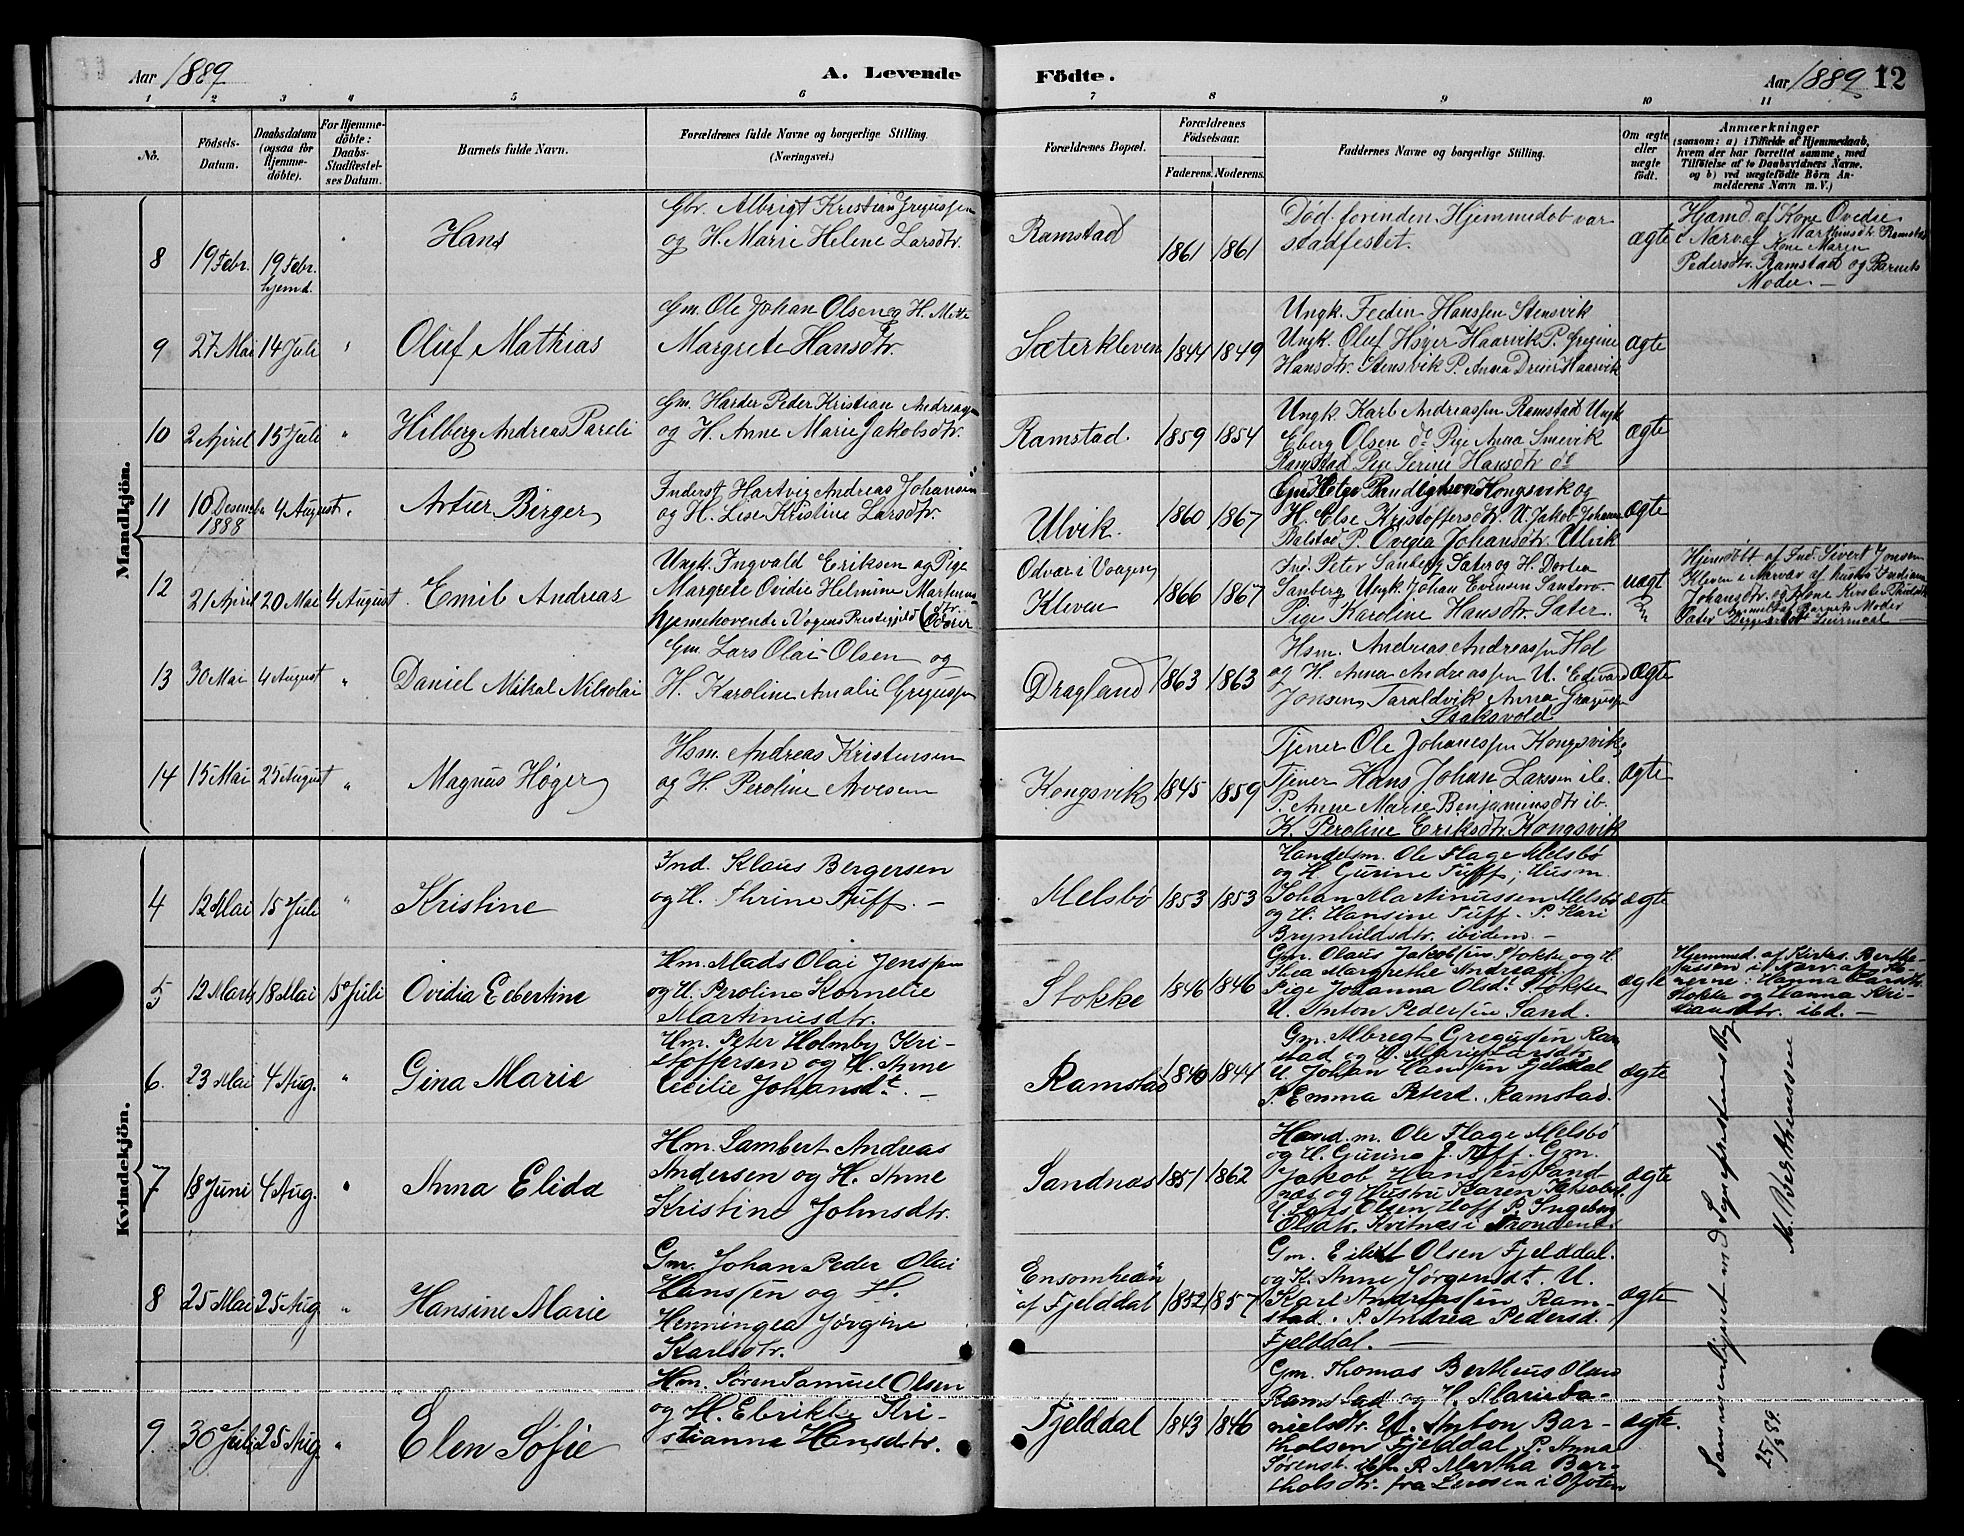 Aar 1889
A. Levende
Födte.
Aar 1889 12
1 2 3 4 5 6 7 8 9 10 11
No.
Födsels-Datum.
Daabsdatum (ogsaa for Hjemmedöbte).
For Hjemmedöbte: Daabs-Stadfestelses Datum.
Barnets fulde Navn.
Forældrenes fulde Navne og borgerlige Stilling. (Næringsvei.)
Forældrenes Bopæl.
Forældrenes Födselsaar.
Faderens. Moderens.
Faddernes Navne og borgerlige Stilling.
Om ægte eller uægte födt.
Anmærkninger
(saasom: a) i Tilfælde af Hjemmedaab,
hvem der har forrettet samme, med
Tilföielse af to Daabsvidners Navne.
og b) ved uægtefödte Börn Anmelderens Navn m. V.)
Mandkjön.
8 19 Febr. 19 Febr. hjemd. " Hans
Gbr. Albrigt Kristian Gregussen
og H. Marie Helene Larsdtr.
Ramstad 1861 1861
Död forenden Hjemmedob var
stadfestet.
ægte
Hjemd. af Kone Ovedie
Marthinsdtr. Ramstad
i Nærv. af Kone Maren
Pedersdtr. Ramstad og Barnets
Moder. —
9 27 Mai 14 Juli " Oluf Mathias
Gm. Ole Johan Olsen og H. Mette
Margrete Hansdtr.
Sæterkleven 1844 1849
Ungk. Fedin Hanssen Stensvik
Ungk. Oluf Høyer Haarvik P. Gregine
Hansdtr. Stensvik P. Anna Dreier Haarvik
ægte
10 2 April 15 Juli " Hilberg Andreas Pareli
Gm. Harder Peder Kristian Andreassen
og H. Anne Marie Jakobsdtr.
Ramstad. 1859 1854
Ungk. Karl Andreassen Ramstad Ungk
Eberg Olsen do Pige Anna Smevik
Ramstad Pige Serine Hansdtr do
ægte
11 10 Desember 1888 4 August " Artur Birger
Inderst Hartvig Andreas Johansen
og H. Lise Kristine Larsdtr.
Ulvik. 1860 1867
Kongsvik og
H. Else Kristoffersdtr. U. Jakob Johansen
Balstad P. Ovegia Johansdtr. Ulvik
ægte
12 21 April 20 Mai 4 August. Emil Andreas
Ungk. Ingvald Eriksen og Pige
Margrete Ovidie Helmine Martinusdtr.
hjemehovende i Vogens Prestegjeld
Odvær i Vaagen
Kleven 1866 1867
Ind. Peter Sanberg Sæter og H. Dortea
Sanberg Ungk. Johan Evensen Santorv.
Pige Karoline Hansdtr Sæter.
uægt
Hjemdöbt af Ind. Sivert Jonsen
Kleven i Nærvær af hustru
Johansdtr. og Kone
Anmeldt af Barnets Moder
13 30 Mai 4 August " Daniel Mikal Nikolai
Gm. Lars Olai Olsen og
H. Karoline Amalie Gregussen
Dragland 1863 1863
Hsm. Andreas Andreassen Hol
og H. Anna Andreassen U. Edvard
Jonsen Taraldvik Anna Gregussen
Staksvold
ægte
14 15 Mai 25 August " Magnus Høger
Hsm. Andreas Kristensen
og H. Peroline Arvesen
Kongsvik 1845 1859
Tjener Ole Johanessen Kongsvik,
Tjener Hans Johan Larssen ib.
P. Anne Marie Benjaminsdtr ib.
K. Peroline Eriksdtr. Kongsvik
ægte
Kvindekjön.
4 12 Mai 15 Juli " Kristine
Ind. Klaus Bergersen
og H. Thrine Tuff. —
Melsbö 1853 1853
Handelsm. Ole Flage Melsbö
og H. Gurine Tuff, Husm.
Johan Martinussen Melsbö
og H. Hansine Tuff. P. Kari
Brynhildsdtr. ibidem —
ægte
5 12 Marts 18 Mai 15 Juli Ovidia Ecbertine
Hm. Mads Olai Jenssen
og H. Peroline Kornelie
Martinusdtr.
Stokke 1846 1846
Gm. Olaus Jakobsen Stokke og H.
Thea Margrethe Andreasd.
Pige Johanna Olsdt. Stokke
U. Anton Pedersen Sand.
ægte
Hjemmed. af Kirkes. Berthe-
ussen i Nærv. af
Hanna
Stokke og Hanna Kri-
stiansdtr. ibd. —
6. 23 Mai 4 Aug. " Gina Marie
Hm. Peter Holmby Kri-
stoffersen og H. Anne
Cecilie Johansdt. —
Ramstad 1840 1844
Gm. Albregt Gregusen Ram
stad og H. Marie Larsdtr.
U. Johan Hanssen Fjelddal
P. Emma Petersd. Ramstad.
ægte
7 18 Juni 4 Aug. " Anna Elida
Hm. Lambert Andreas
Andersen og H. Anne
Kristine Johnsdtr.
Sandnæs 1851 1862
Hand. m. Ole Flage Melsbö
og H. Gurine J. Tuff. Gm.
Jakob Hanssen Sand
næs og Hustru Karen Jakobsd.
U. Lars Olsen Hoff P. Ingeborg
Olsdtr. Kvitnæs i Trondenes.
ægte
8 25 Mai 25 Aug " Hansine Marie
Gm. Johan Peder Olai
Hanssen og H.
Henningea Jørgine
Karlsdtr.
Ensomheden
af Fjelddal 1852 1857
Gm. Eilert Olsen Fjelddal.
og H. Anne Jørgensdt. U.
Karl Andreassen Ram-
stad. P. Andrea Pedersd.
Fjelddal. —
ægte
9. 30 Juli 25 Aug. " Elen Sofie
Hm. Søren Samuel Olsen
og H. Ebrikke Kri-
stianna Hansdtr.
Fjelddal 1843 1846
Gm. Thomas Bertheus Olsen
Ramstad og H. Marie Da-
nielsdtr. U. Anton Bar-
tholsen Fjelddal, P. Anna
Sørensd. ibd. P. Martha Bar-
tholsdtr. fra Leirosen i Ofoten
ægte.
Sammenlignet med Sognepræstens Bog
25/8 89. M. Bertheussen